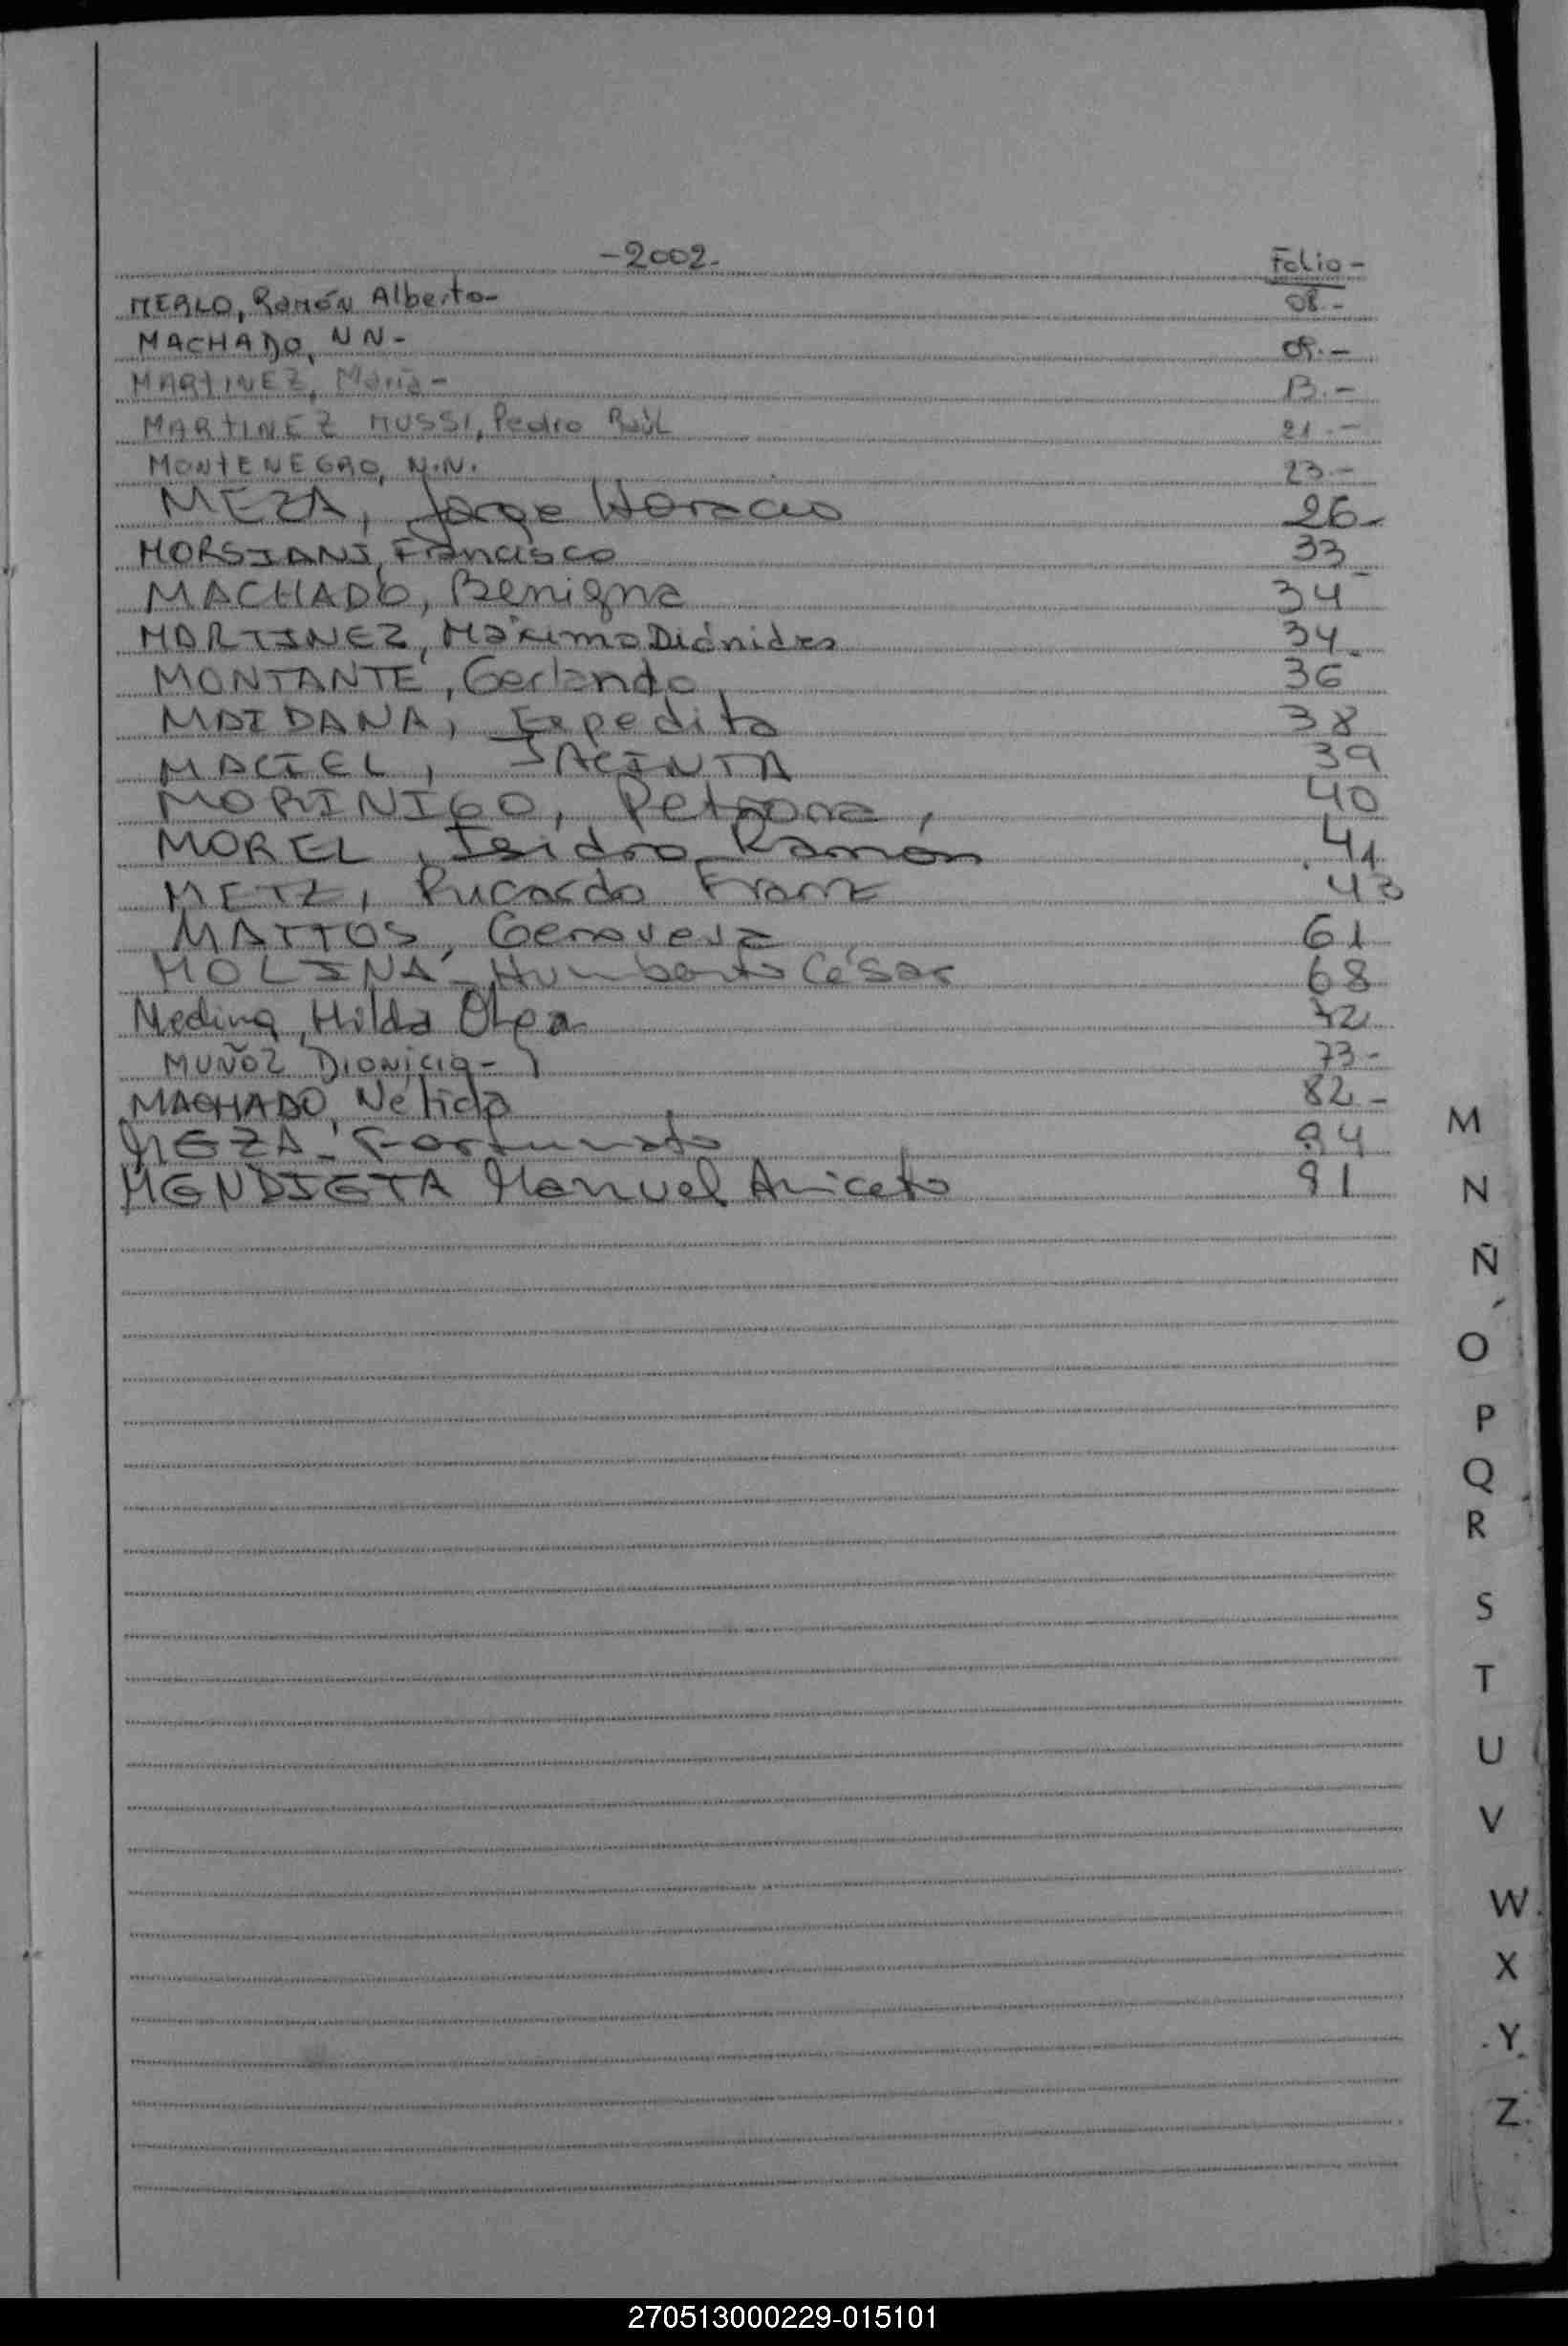 -2002- Folio-
MERLO, Ramón Alberto- 08-
MACHADO, NN- 09.-
MARTINEZ, Maria- 13.-
MARTINEZ MUSSI, Pedro Raúl 21.-
MONTENEGRO, N.N. 23.-
MEZA, Jorge Horacio 26-
MORSIANI, Francisco 33
MACHADO, Benigna 34-
MARTINEZ, Máximo Diónides 34-
MONTANTE, Gerlando 36
MAIDANA, Expedita 38
MACIEL, JACINTA 39
MORINIGO, Petrona, 40
MOREL, Isidro Ramón 41
METZ, Ricardo Franz 43
MATTOS, Genoveva 61
MOLINA- Humberto César 68
Medina, Hilda Olga 72
MUÑOZ Dionicia- 73-
MACHADO, Nélida 82-
MEZA- Fortunato
MENDIETA Manuel Aniceto 91
M
N
Ñ
O
P
Q
R
S
T
U
V
W
X
Y
Z
270513000229-015101